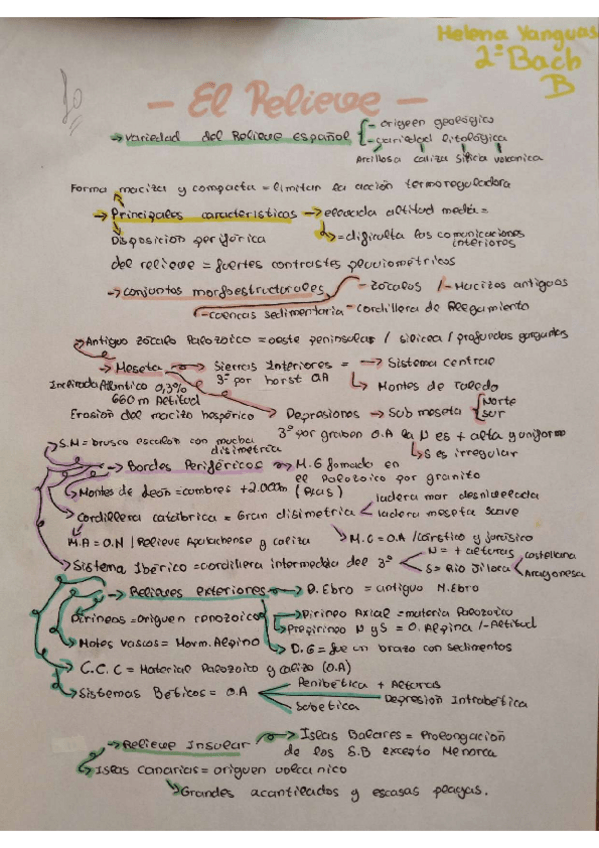 Helena Yanguas
2º Bach
B
10
- El Relieve -
→ Variedad del Relieve español { - origeen geológico
- variedad litológica
Arcillosa caliza Silicia volcanica
Forma maciza y compacta = limitan la acción termoreguladora
→ Principales caracteristicos → elevada altitud media =
Disposicion periférica → = dificulta las comunicaciones interiores
del relieve = fuertes contrastes pluviométricos
→ conjuntos morfoestructurales - Zócalos / - Macizos antiguos
- cuencas sedimentaria - cordillera de Plegamiento
→ Antiguo zócalo Paleozoico = oeste peninsular / silicea / profundas gargantas
→ Meseta → Sierras Interiores = → Sistema central
Inclinada Atlantico 0,3% 3º por horst O.A → Montes de Toledo
660 m Altitud
Erosión del macizo hespérico → Depresiones → Sub meseta { Norte
Sur
3º por graben O.A la N es + alta y uniforme
→ S es irregular
→ S.M = brusco escalon con mucha disimetria
→ Bordes Periféricos → M.G formado en el Paleozoico por granito
→ Montes de León = cumbres + 2.000m
→ Cordillera catabrica = Gran disimetria < ladera mar desnivelada
ladera meseta suave
→ M.A = O.H / Relieve Apalachense y caliza → M.C = O.A / cárstico y jurásico
→ Sistema Ibérico = cordillera intermedia del 3º < N = + alturas castellana
S = Rio Jiloca Aragonesa
→ Relieves exteriores → D. Ebro = antiguo M. Ebro
Pirineos = origuen cenozoico → Pirineo Axial = materia Paleozoico
→ Prepirineo N y S = O. Alpina / - Altitud
→ Motes vascos = Movm. Alpino → D.G = fue un brazo con sedimentos
→ C.C.C = Material Paleozoico y calizo (O.A)
→ Sistemas Béticos = O.A < Penibética + Alturas
Depresión Intrabética
Subetica
→ Relieve Insular → Islas Balares = Prolongación
de los S.B excepto Menorca
→ Islas Canarias = origuen volcanico
→ Grandes acantilados y escasas playas.